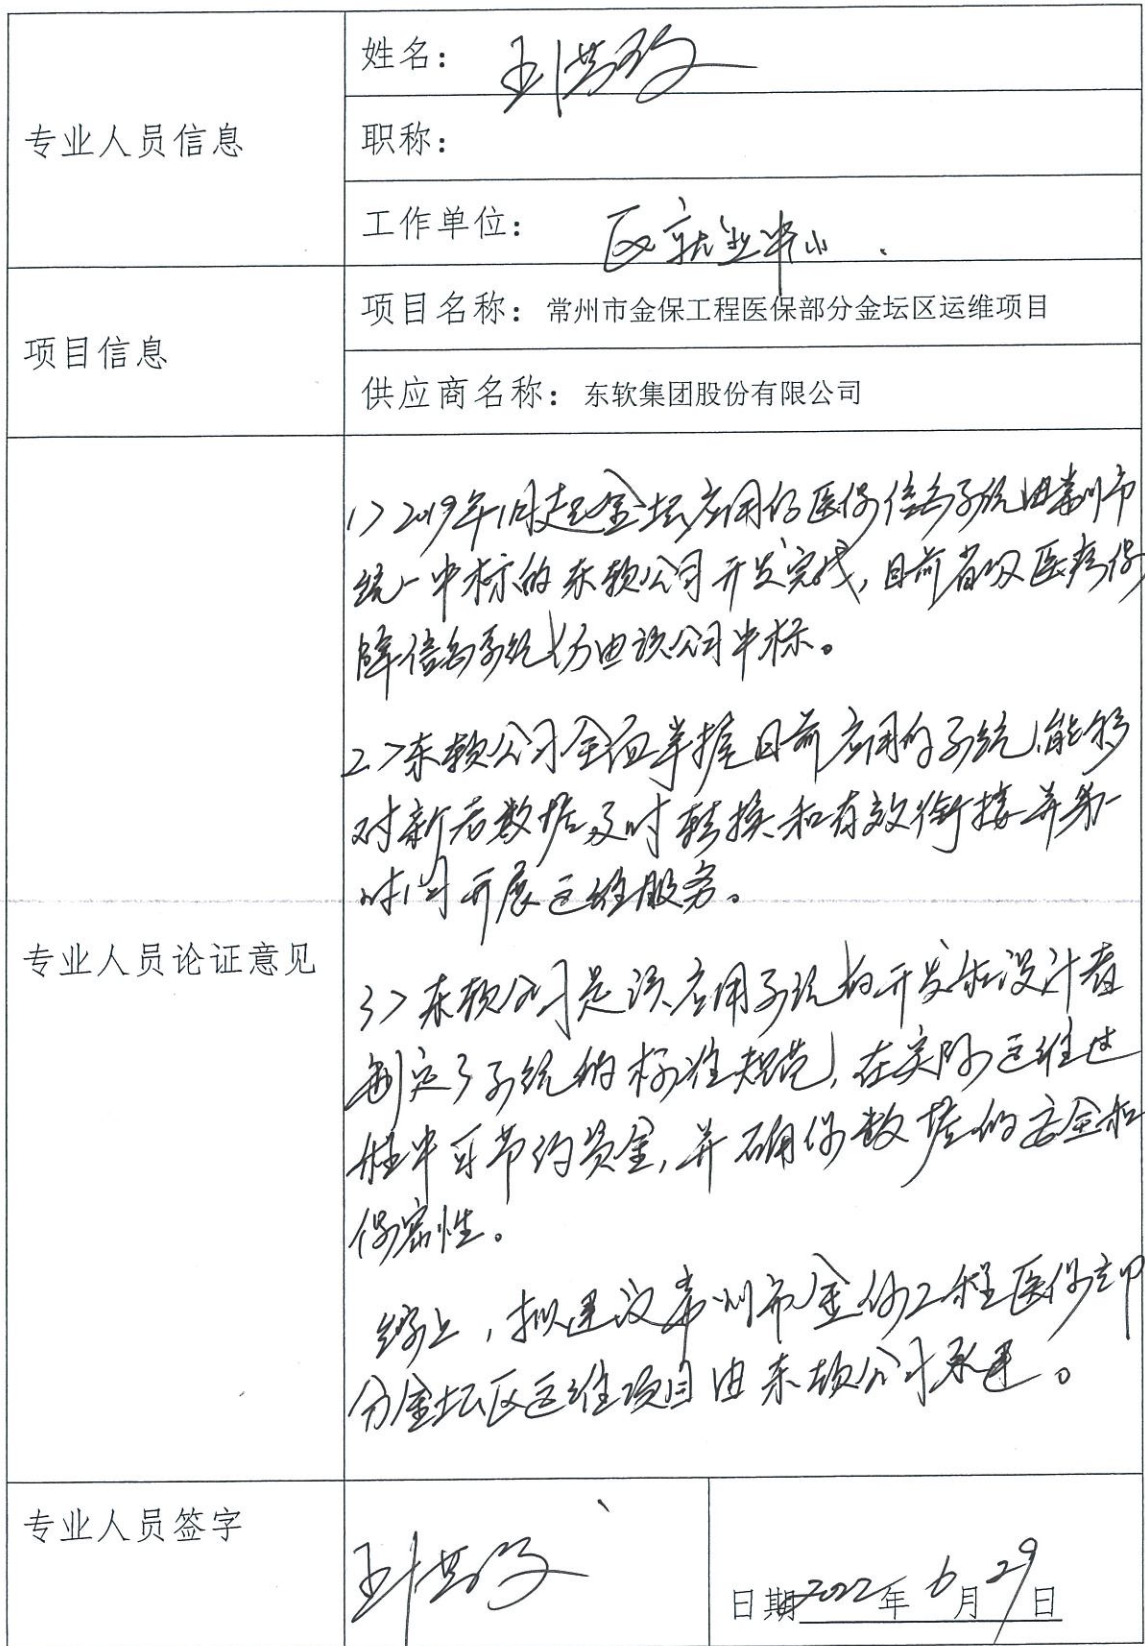 姓名：王洪
专业人员信息
职称：
工作单位：区就业中心.
项目信息
项目名称：常州市金保工程医保部分金坛区运维项目
供应商名称：东软集团股份有限公司
1>2019年1月起金坛应用的医保信息系统由常州市
统一中标的东软公司开发完成,目前省级医疗保
障信息系统仍由该公司中标。
2>东软公司全面掌握目前应用的系统,能够
对新老数据及时转换和有效衔接并第一
时间开展运维服务。
专业人员论证意见
3>东软公司是该应用系统的开发和设计者
制定了系统的标准规范,在实际运维过
程中可节约资金,并确保数据的安全和
保密性。
综上,拟建议常州市金保工程医保部
分金坛区运维项目由东软公司承建。
专业人员签字
王洪
日期2022年6月29日